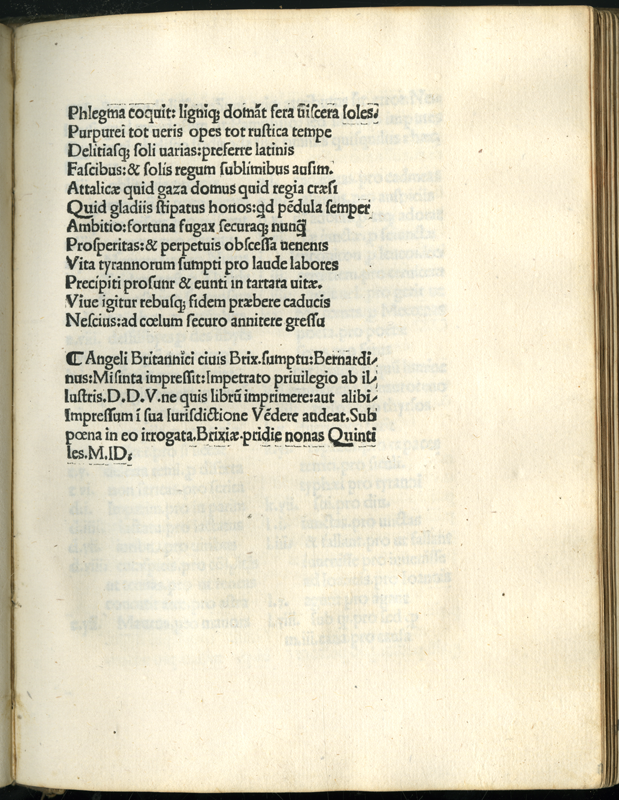 Phlegma coquit: ligniq; domāt fera ũiſcera ſoles.
Purpurei tot ueris opes tot ruſtica tempe
Delitiaſq; ſoli uarias: preferre latinis
Faſcibus: & ſolis regum ſublimibus auſim.
Attalicæ quid gaza domus quid regia cræſi
Quid gladiis ſtipatus honos: qd pēdula ſemper
Ambitio: fortuna fugax ſecuraq; nunq̄
Proſperitas: & perpetuis obſceſſa uenenis
Vita tyrannorum ſumpti pro laude labores
Precipiti proſunr & eunti in tartara uitæ.
Viue igitur rebuſq; fidem præbere caducis
Neſcius: ad cœlum ſecuro annitere greſſu
¶ Angeli Britannici ciuis Brix. ſumptu: Bernardi⸗
nus: Miſinta impreſſit: Impetrato priuilegio ab il⸗
luſtris. D. D. V. ne quis librũ imprimere: aut alibi⸗
Impreſſum ī ſua Iurisdictione Vēdere audeat. Sub
pœna in eo irrogata. Brixiæ. pridie nonas Quinti
les. M. ID.